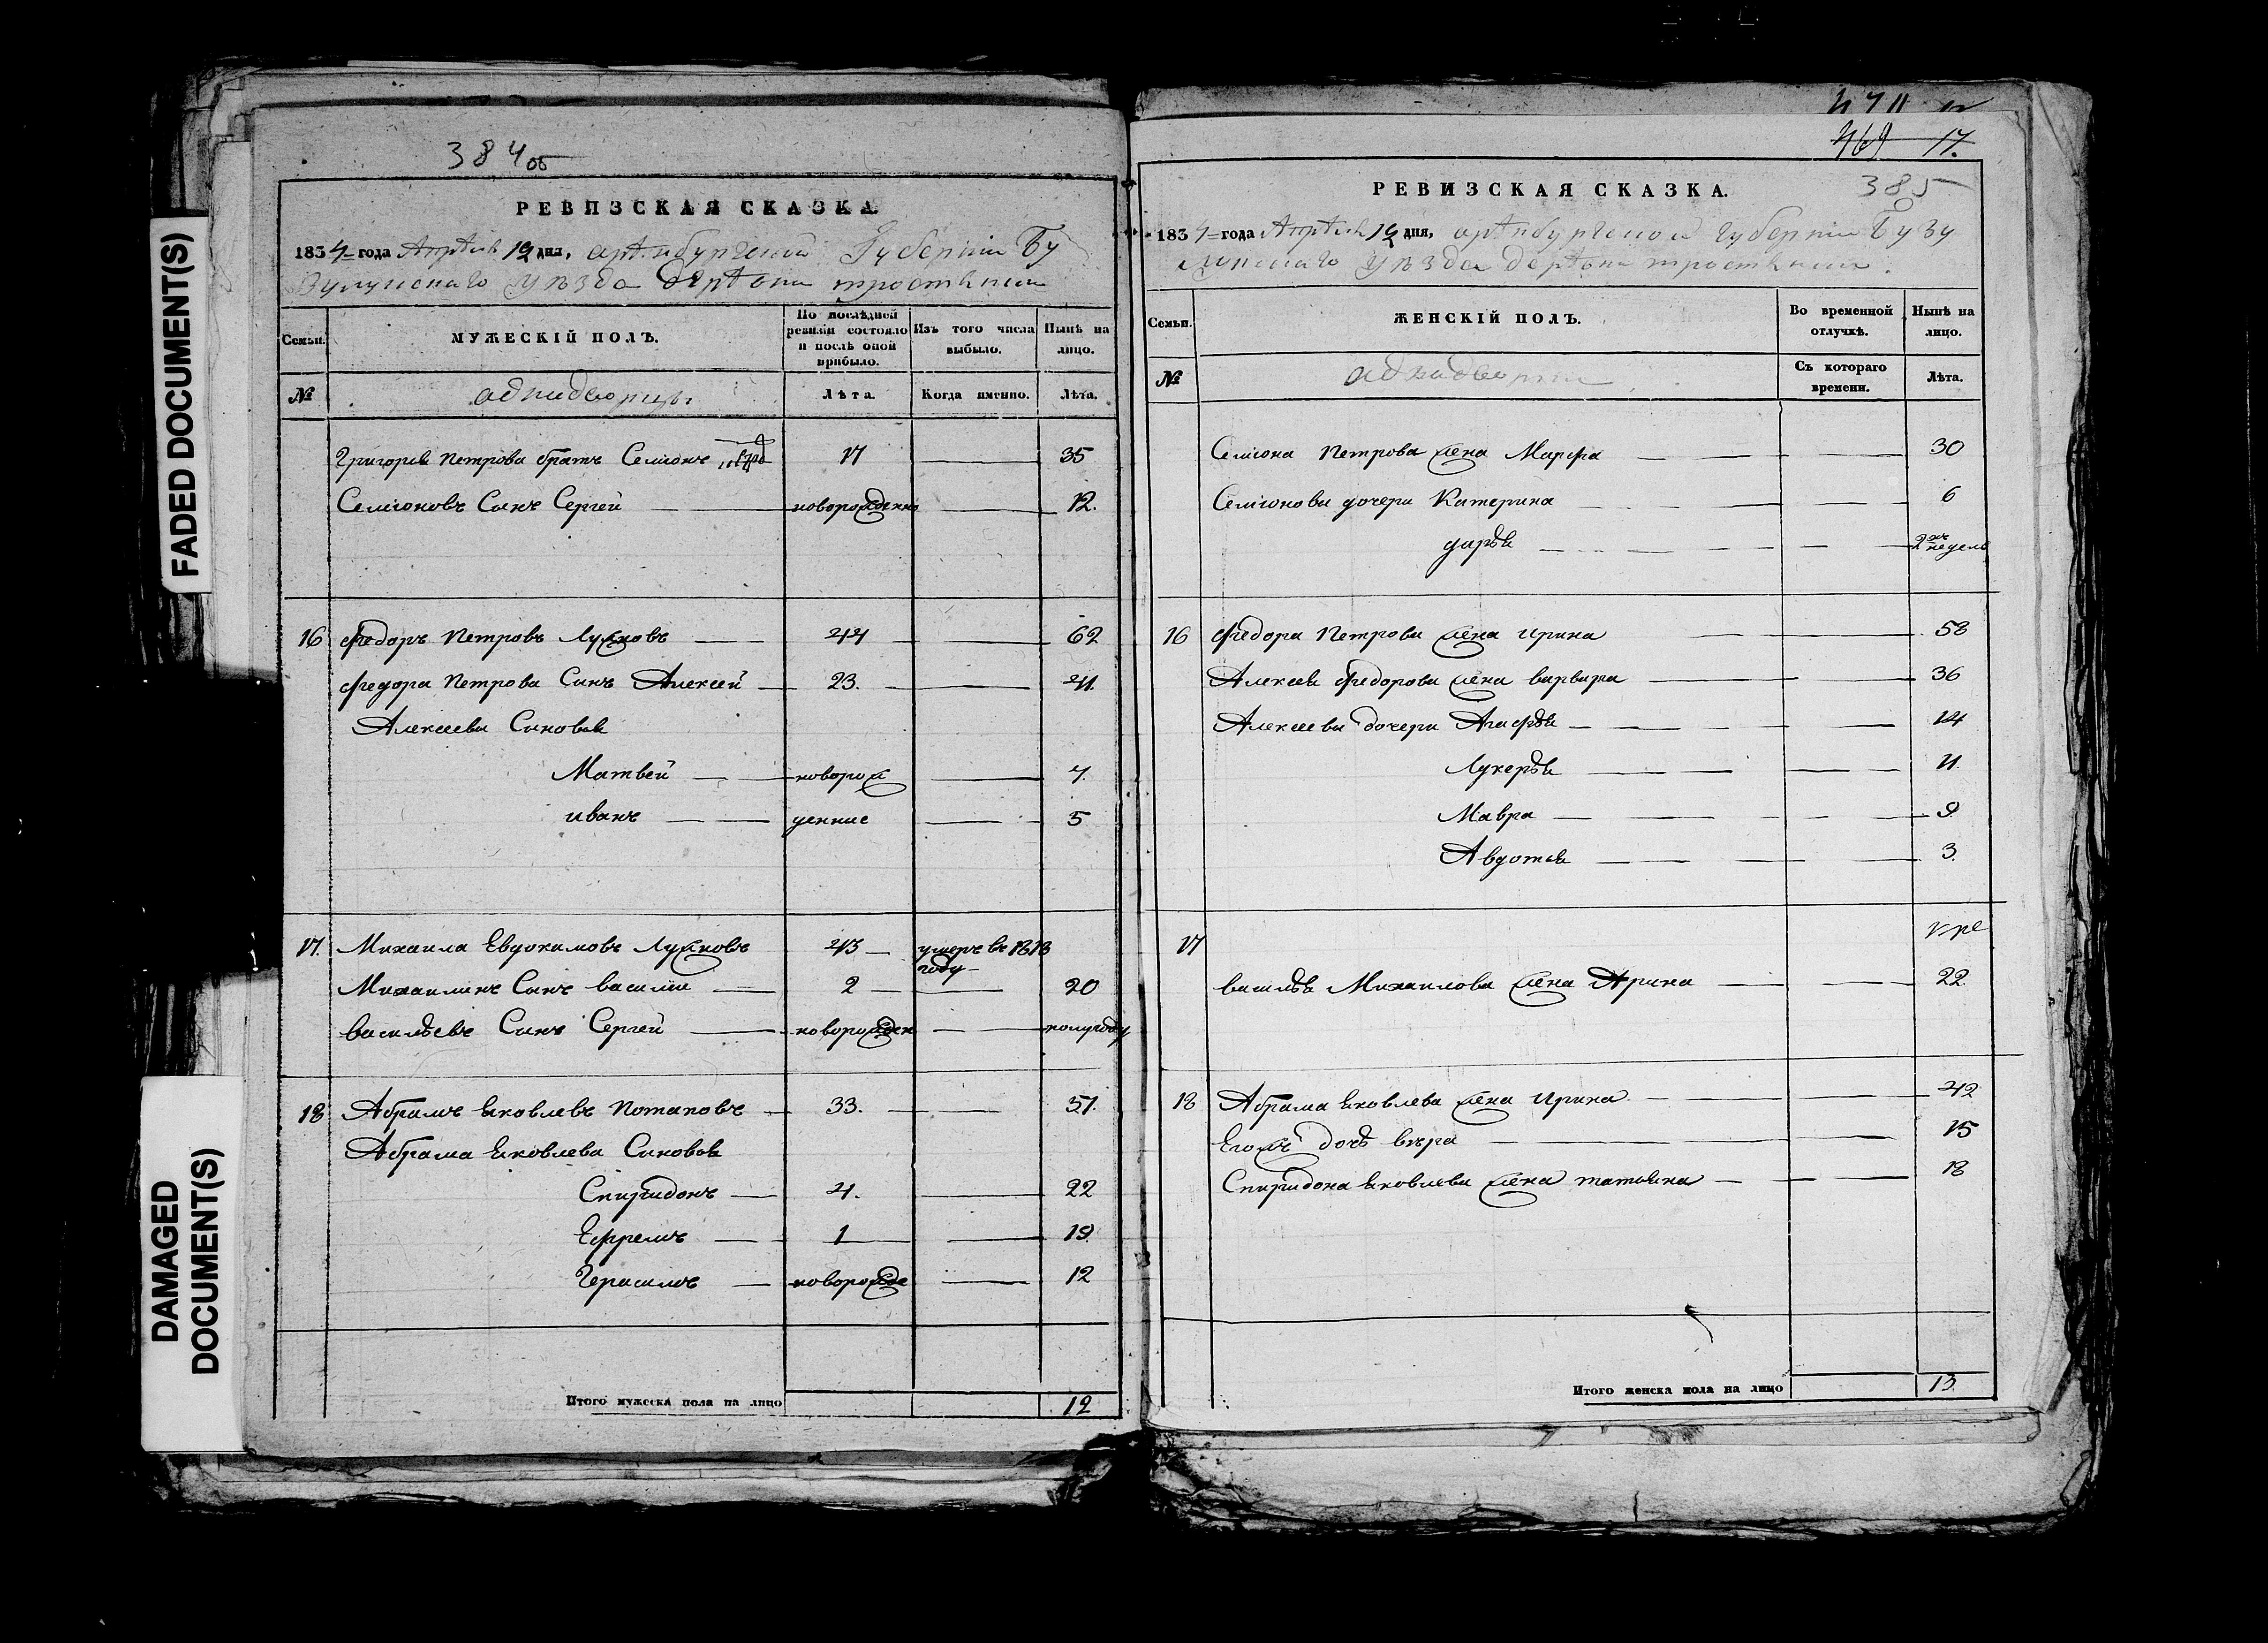 FADED DOCUMENT(S)
DAMAGED
DOCUMENT(S)
384 об
РЕВИЗСКАЯ СКАЗКА.
1834 года Апреля 19 дня, аренбургской Губернии Бу
зулуцкаго уезда деревни тростянки
Семьи.
МУЖЕСКІЙ ПОЛЪ.
По послѣдней ревизіи состояло и послѣ оной прибыло.
Изъ того числа выбыло.
Нынѣ на лицо.
№
аднидворцы
Лѣта.
Когда именно.
Лѣта.
Григорья Петрова братъ Семионъ 17 35
Семионовъ Сынъ Сергей новорожденно 12.
16 Федоръ Петровъ Лужновъ 44 62
Федора Петрова Сынъ Алексей 23. 41.
Алексеевы Сыновья
Матвей новорож 7.
иванъ денные 5
17. Михаила Евдокимовъ Лужновъ 43 умеръ въ 1818
году
Михаилинъ Сынъ василии 2 20
васильевъ Сынъ Сергей новорожден полугоду
18 Абрамъ яковлевъ Потаповъ 33. 51.
Абрама яковлева Сыновья
Спиридонъ 4. 22
Ефремъ 1 19.
Герасимъ новорожде 12
Итого мужеска пола на лицо 12
471
469 17.
385
РЕВИЗСКАЯ СКАЗКА.
1834 года Апреля 19 дня, аренбургской губернии Бузу
луцкаго уезда деревни тростянки.
Семьи.
ЖЕНСКІЙ ПОЛЪ.
Во временной отлучкѣ.
Нынѣ на лицо.
№
аднидворки
Съ котораго времени.
Лѣта.
Семиона Петрова жена Марфа 30
Семионовы дочери Катерина 6
дарья 2хъ недель
16 Федора Петрова жена ирина 58
Алексея Федорова жена варвара 36
Алексеевы дочери Агафья 14
Лукерья 11.
Мавра 9.
Авдотья 3.
17
василья Михаилова жена Арина 22
18 Абрама яковлева жена ирина 42
Егожъ дочь вера 15
Спиридона яковлева жена татьяна 18
Итого женска пола на лицо 13